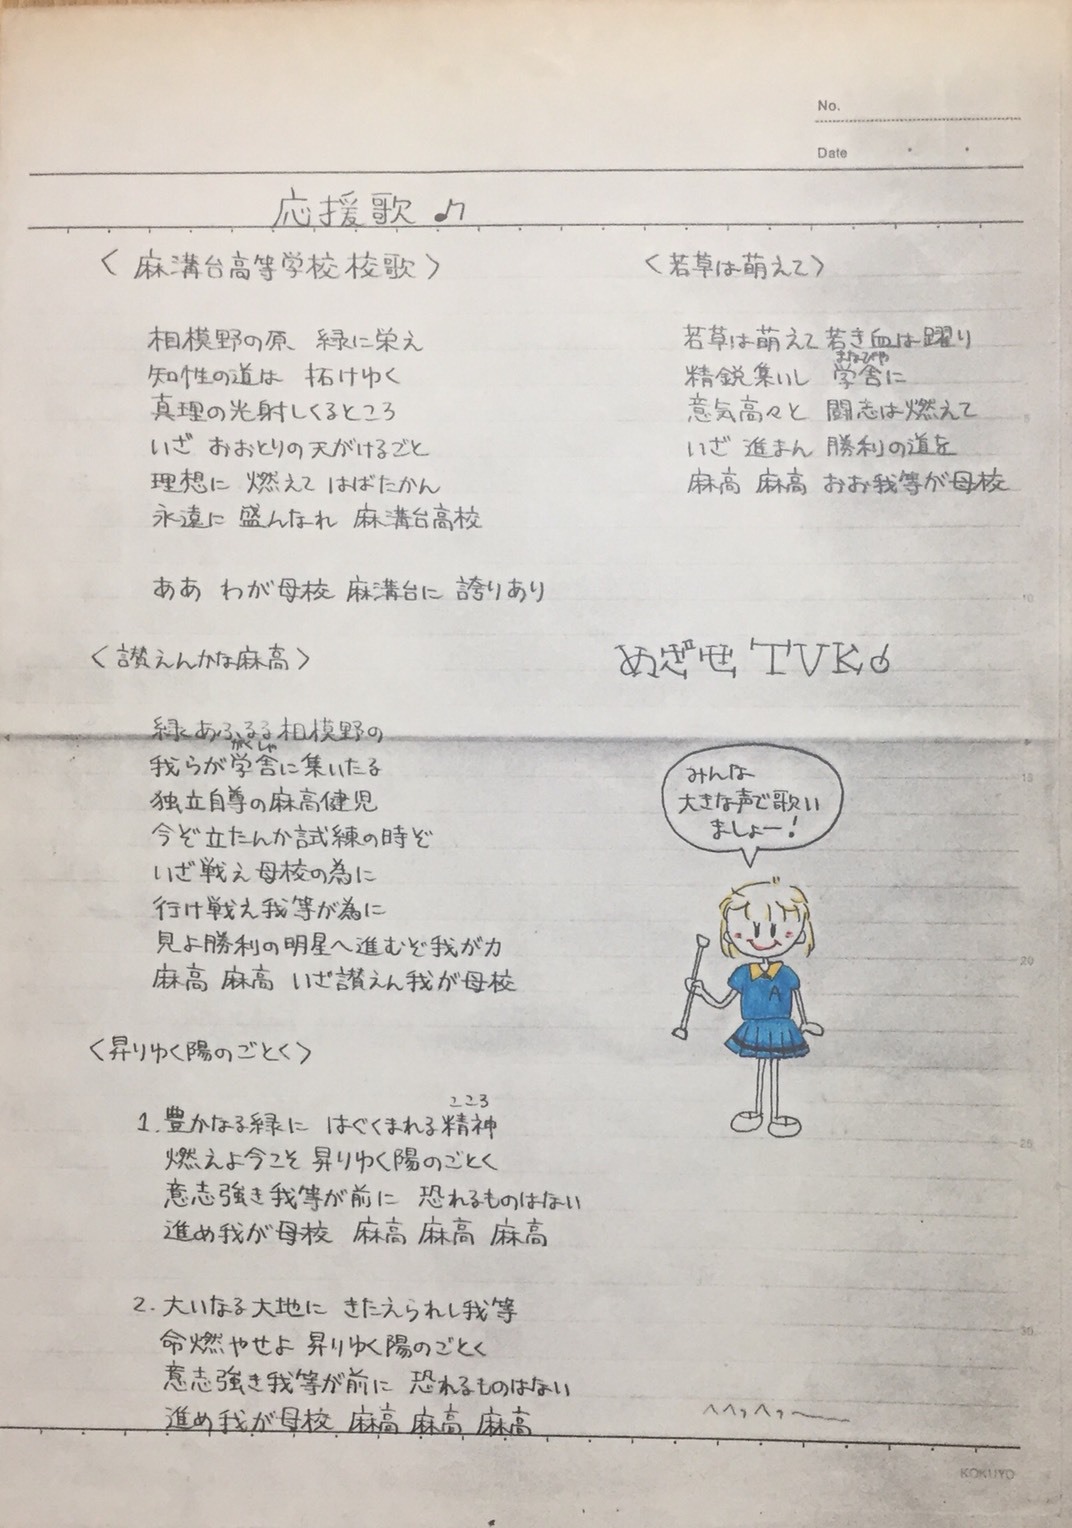 No.
Date
応援歌♪
〈麻溝台高等学校 校歌〉
相模野の原、緑に栄え
知性の道は 拓けゆく
真理の光射しくるところ
いざ おおとりの天がけるごと
理想に 燃えて はばたかん
永遠に 盛んなれ 麻溝台高校
ああ わが母校 麻溝台に 誇りあり
〈若草は萌えて〉
若草は萌えて 若き血は躍り
まなびや
精鋭集いし 学舎に
意気高々と 闘志は燃えて
いざ 進まん 勝利の道を
麻高 麻高 おお我等が母校
〈讃えんかな麻高〉
緑あふるる相模野の
がくしゃ
我らが学舎に集いたる
独立自尊の麻高健児
今ぞ立たんか試練の時ぞ
いざ戦え母校の為に
行け戦え我等が為に
見よ勝利の明星へ進むぞ我が力
麻高 麻高 いざ讃えん我が母校
めざせTVK
みんな
大きな声で歌い
ましょー!
A
〈昇りゆく陽のごとく〉
こころ
1. 豊かなる緑に はぐくまれる精神
燃えよ今こそ 昇りゆく陽のごとく
意志強き我等が前に 恐れるものはない
進め我が母校 麻高 麻高 麻高
2. 大いなる大地に きたえられし我等
命燃やせよ 昇りゆく陽のごとく
意志強き我等が前に 恐れるものはない
進め我が母校 麻高 麻高 麻高
KOKUYO
5
10
15
20
25
30